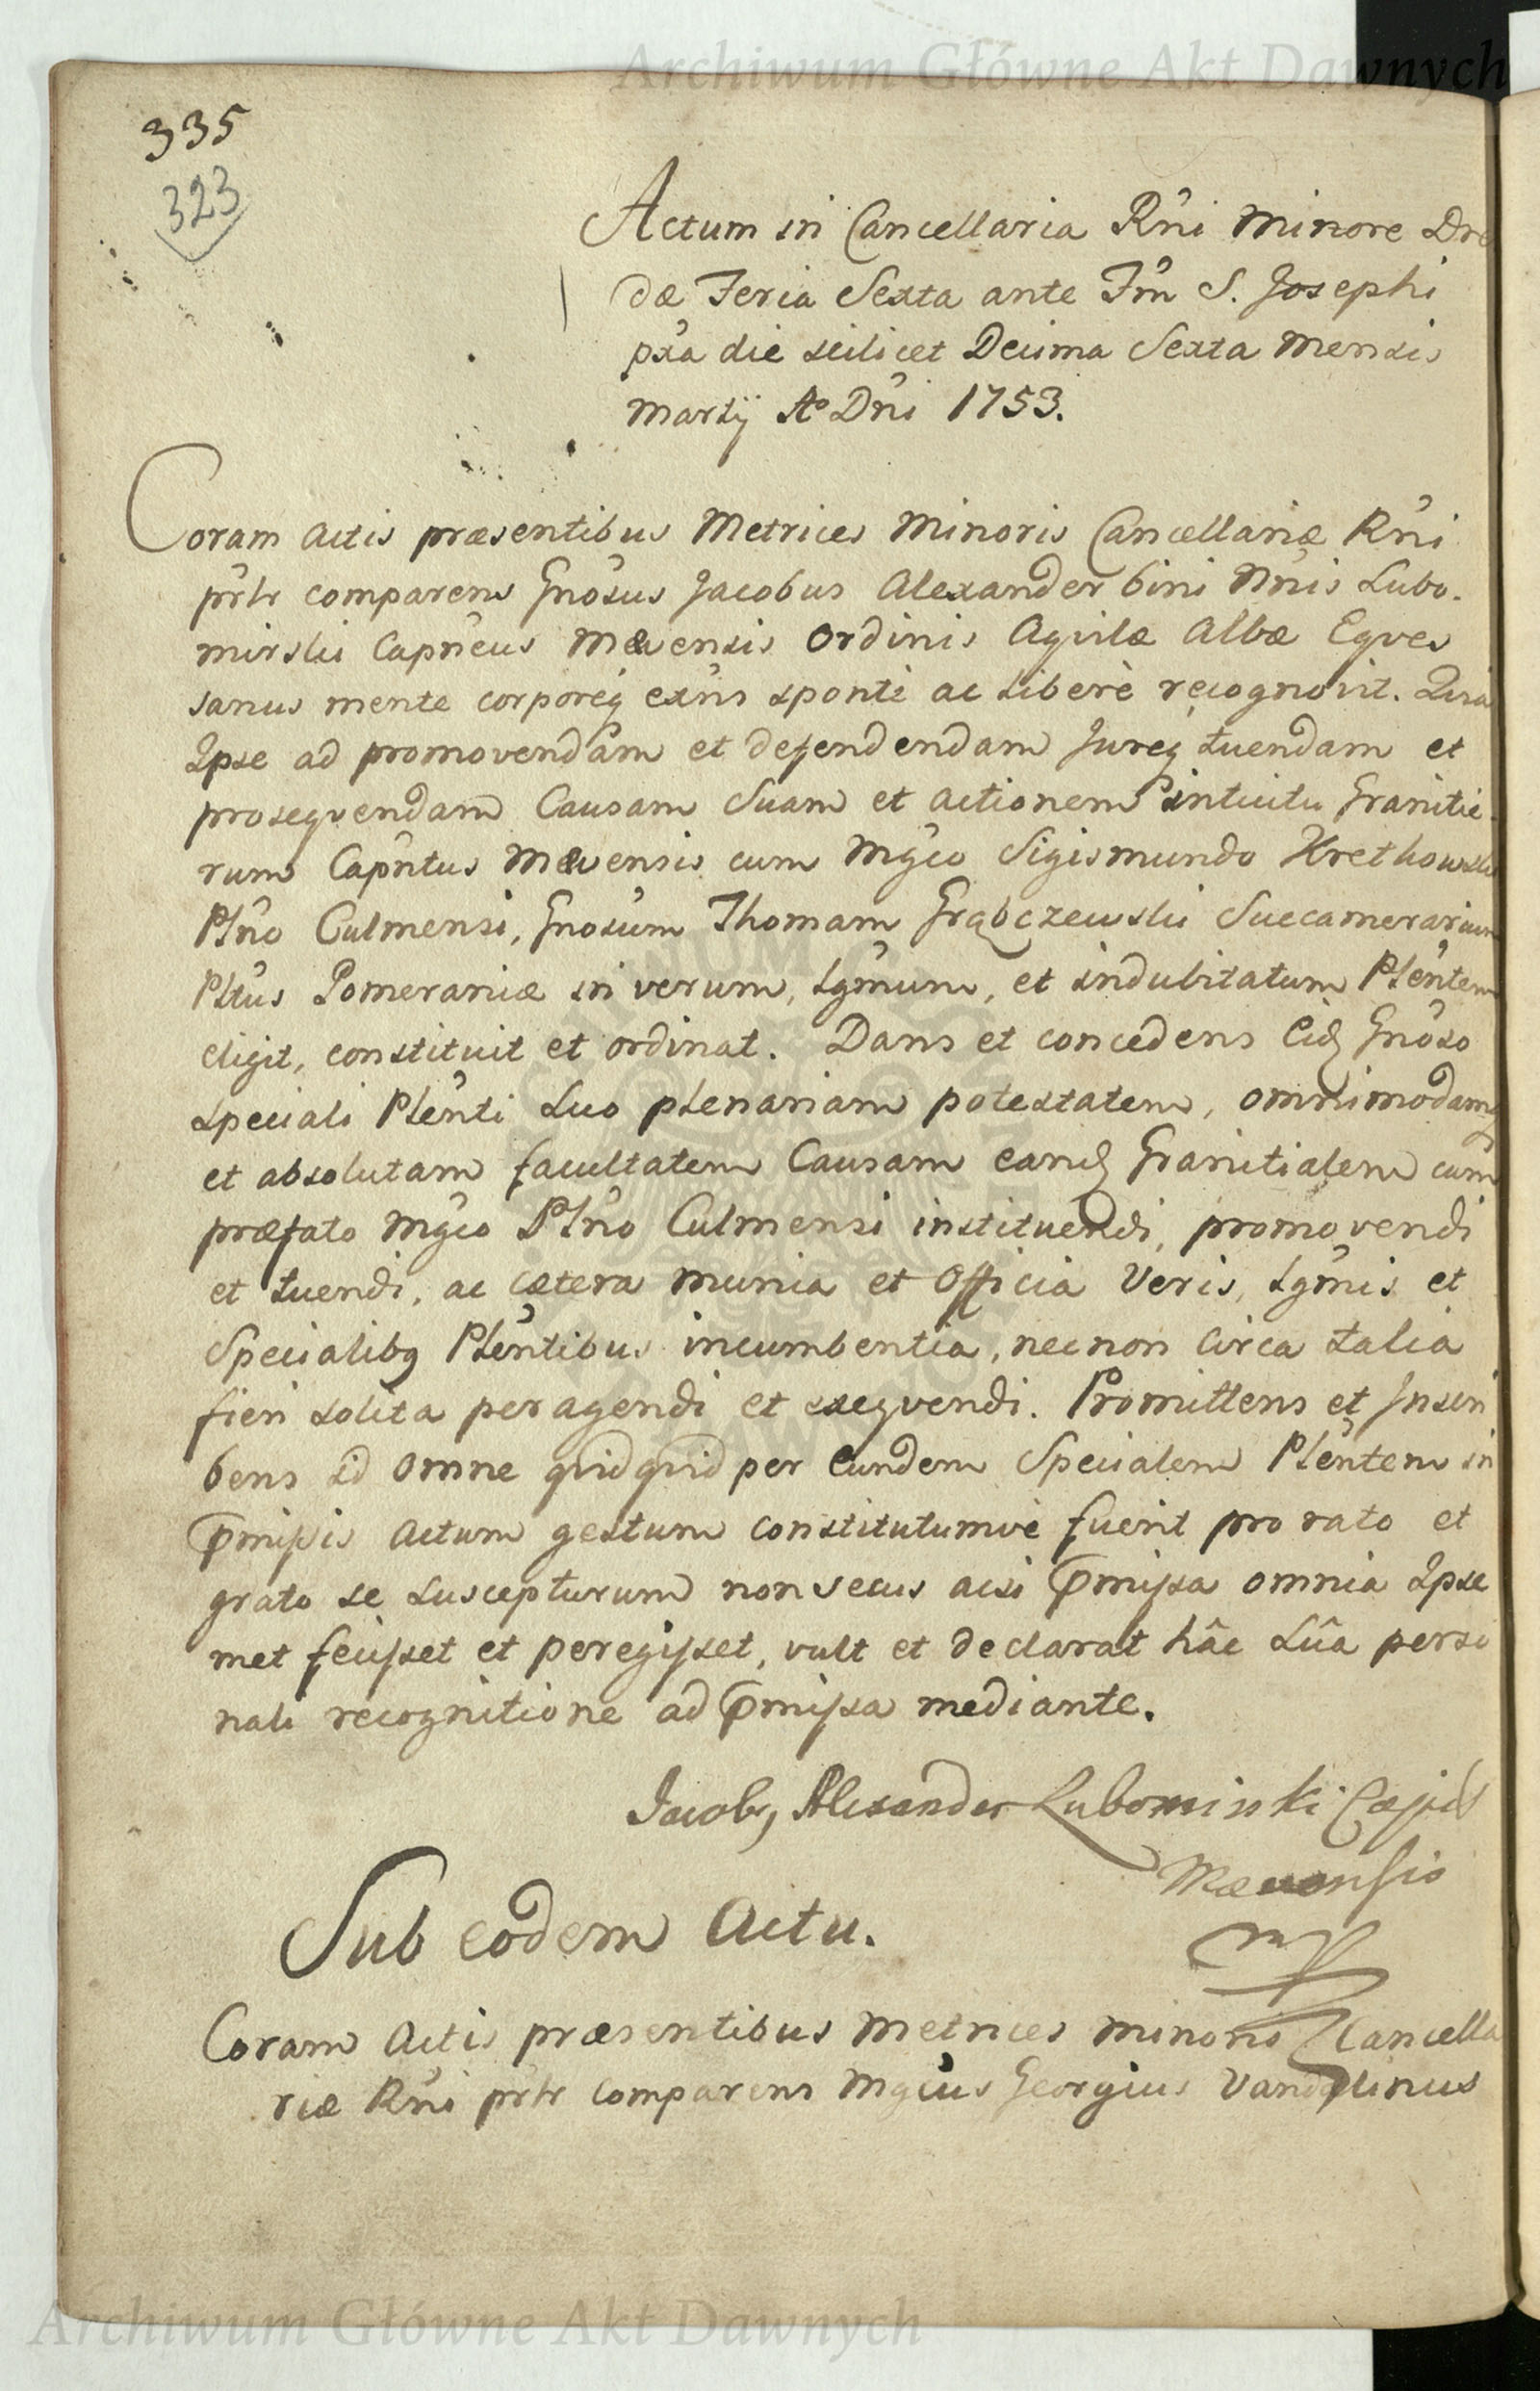 Archiwum Główne Akt Dawnych
335
323
Actum in Cancellaria Rńi Minore Dre
dæ Feria Sexta ante Fm̃ S. Josephi
pxa die scilicet Decima Sexta Mensis
Martij Aº Dńi 1753.
Coram Actis præsentibus Metrices Minoris Cancellariæ Rńi
prlr comparens Gnosus Jacobus Alexander bini Nńis Lubo.
mirski Capneus Mævensis Ordinis Aquilæ Albæ Eques
sanus mente corporeq exńs sponte ac liberè recognovit. Quia
Ipse ad promovendam et defendendam Jureq tuendam et
prosequendam Causam Suam et actionem intuitu Granitie
rum Capńtus Mævensis cum Mgco Sigismundo Krethowski
Płńo Culmensi, Gnosum Thomam Grąbczewski Succamerarium
Płtus Pomeraniæ in verum, lgmum, et indubitatum Plentem
eligit, constituit et ordinat. Dans et concedens Eid Gnoso
speciali Plenti suo plenariam potestatem, omnimodamq
et absolutam facultatem Causam eand Granitialem cum
præfato Mgco Płńo Culmensi instituendi, promovendi
et tuendi, ac cætera munia et Officia Veris, lgmis et
Specialibq Plentibus incumbentia, necnon circa talia
fieri solita peragendi et exequendi. Promittens et Inscri
bens id omne quidquid per Eundem Specialem Plentem in
Pmissis Actum gestum constitutumve fuerit pro rato et
grato se suscepturum non secus acsi Pmissa omnia Ipse
met fecisset et peregisset, vult et declarat hâc Sûa perso
nali recognitione ad Pmissa mediante.
Jacobq Alexander Lubomirski Capits
Mævensis
mp
Sub eodem Actu.
Coram Actis præsentibus Metrices Minoris Cancella
riæ Rńi prlr comparens Mgcus Georgius Vandalinus
Archiwum Główne Akt Dawnych